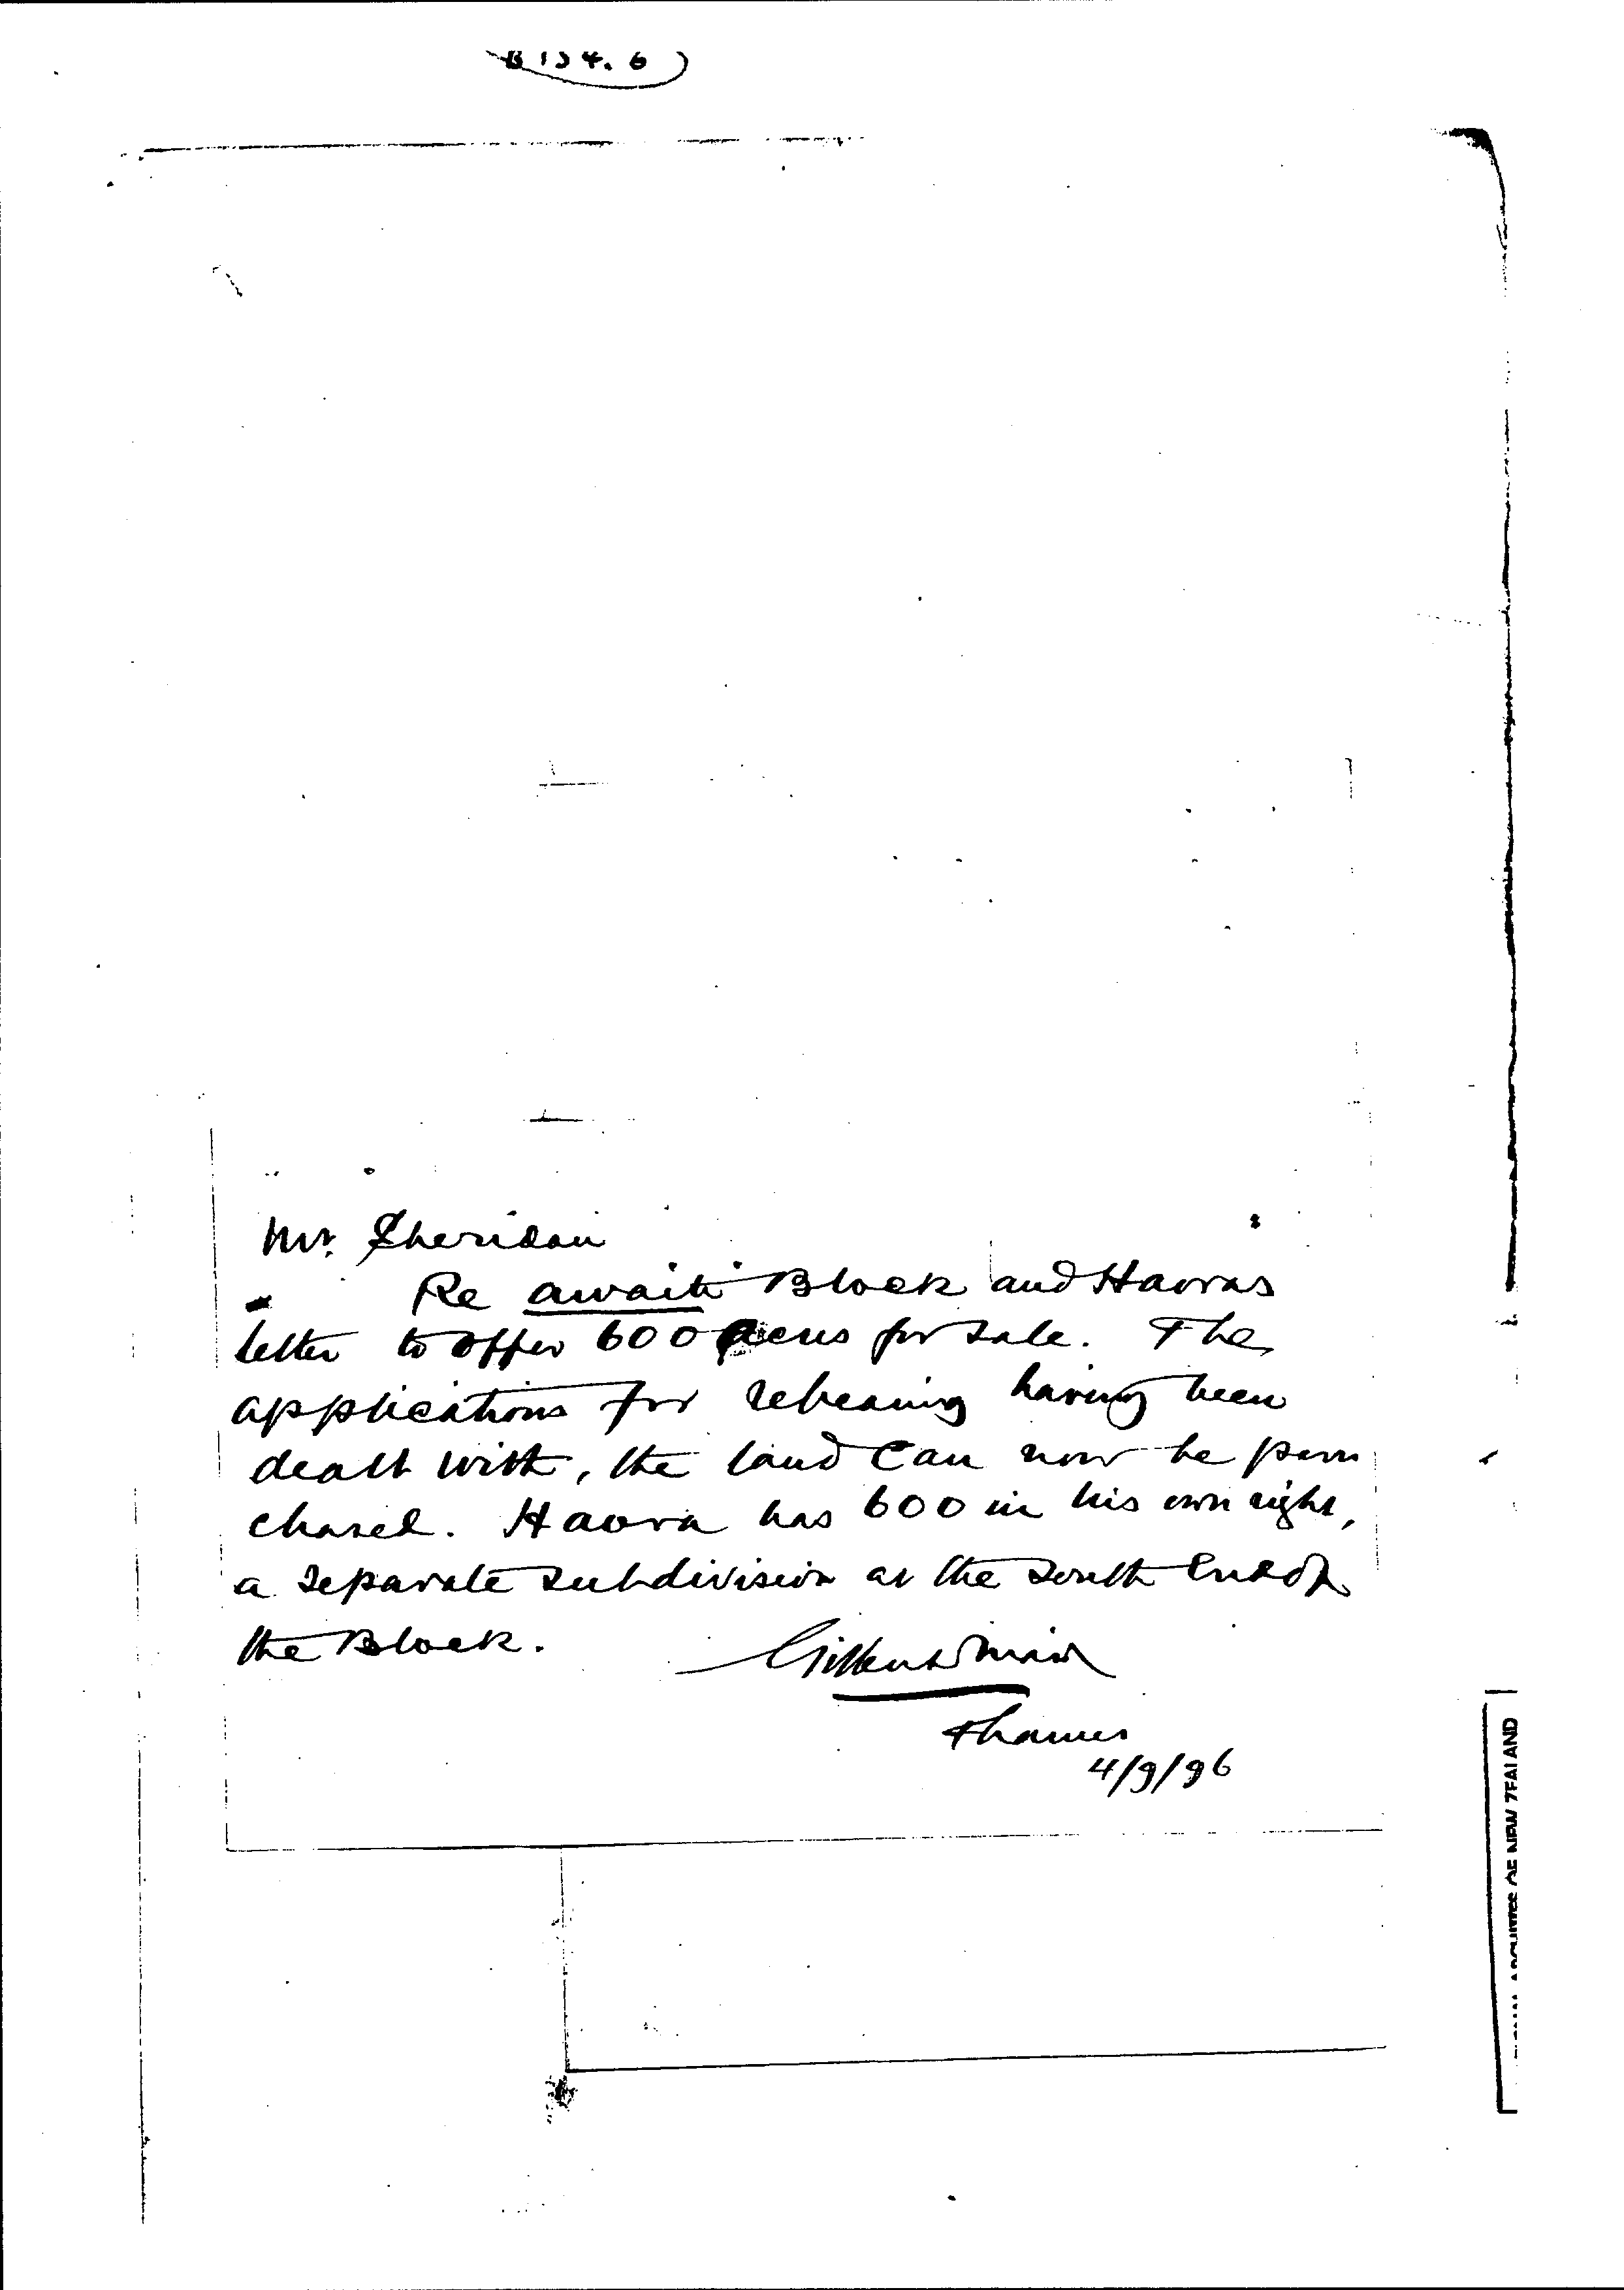 B 134.6
Mr. Sheridan
Re Awaiti Block and Haoras
letter to offer 600 acres for sale. The
applications for rehearing having been
dealt with, the land can now be pur
chased. Haora has 600 in his own right,
a separate subdivision at the South End of
the Block.
Gilbert Mair
Thames
4/9/96
ARCHIVES OF NEW ZEALAND